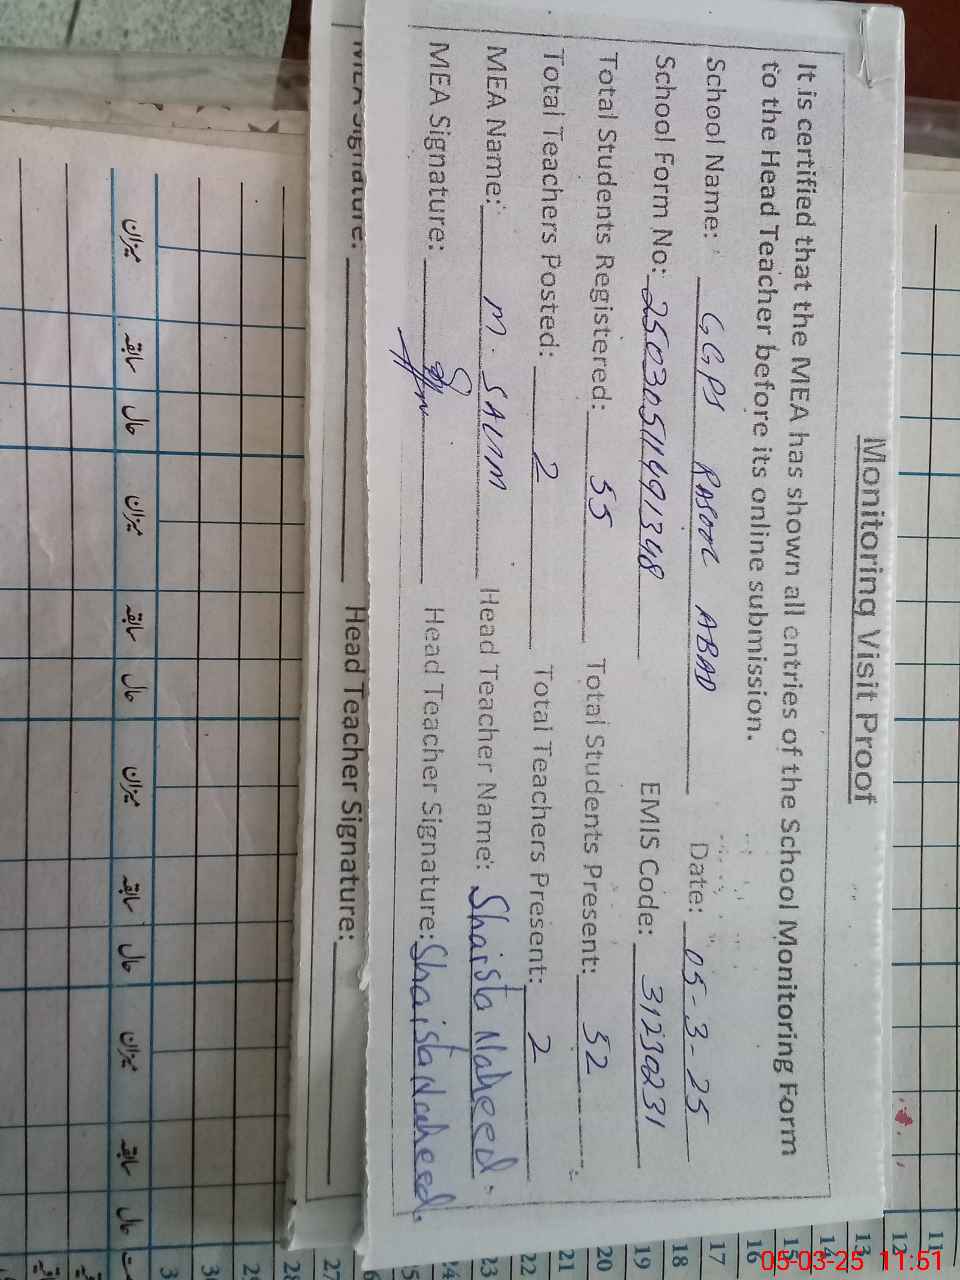 Monitoring Visit Proof
It is certified that the MEA has shown all entries of the School Monitoring Form
to the Head Teacher before its online submission.
School Name: GGPS RASOOL ABAD Date: 05-3-25
School Form No: 2503051149134 8 EMIS Code: 31230231
Total Students Registered: 55 Total Students Present: 52
Total Teachers Posted: 2 Total Teachers Present: 2
MEA Name: M. SALIM Head Teacher Name: Shaista Naheed.
MEA Signature: Head Teacher Signature: Shaista Naheed.
MEA Signature: Head Teacher Signature:
میزان سابقہ حال میزان سابقہ حال میزان سابقہ حال میزان سابقہ حال
11
12
13
14
15
16
17
18
19
20
21
22
23
24
27
28
05-03-25 11:51